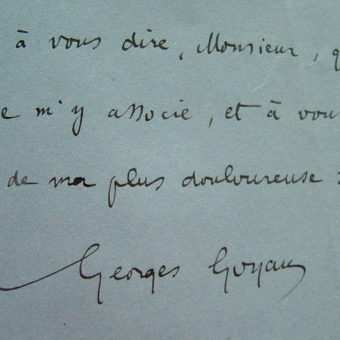 à vous dire, Monsieur, q
e m'y associe, et à vou
de ma plus douloureuse s
Georges Goyau